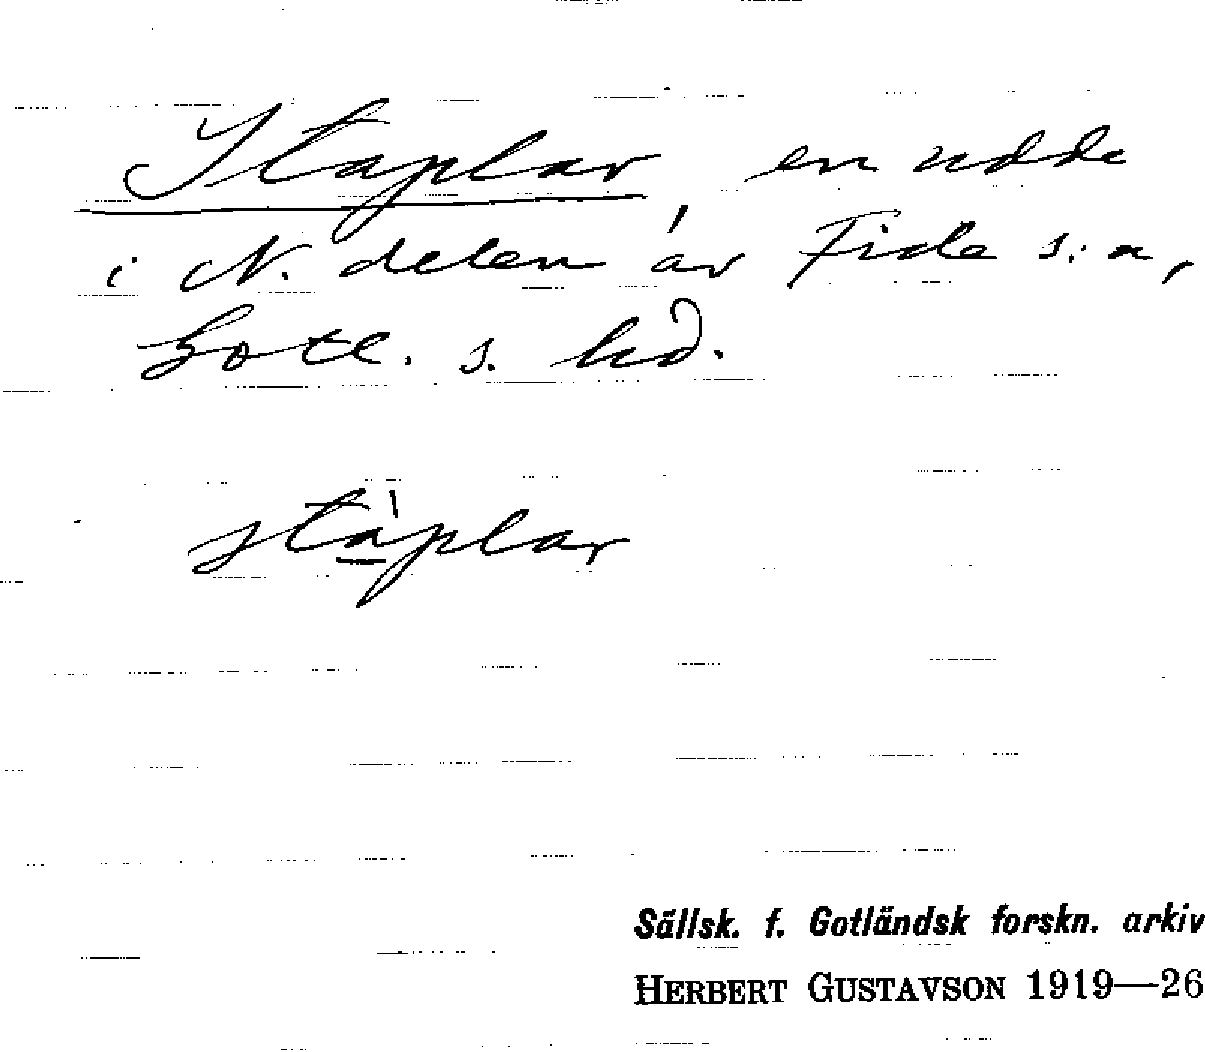 Staplar en udde
i N. delen av Fide s:n,
Gotl. s. hd.
stàplar
Sällsk. f. Gotländsk forskn. arkiv
HERBERT GUSTAVSON 1919—26